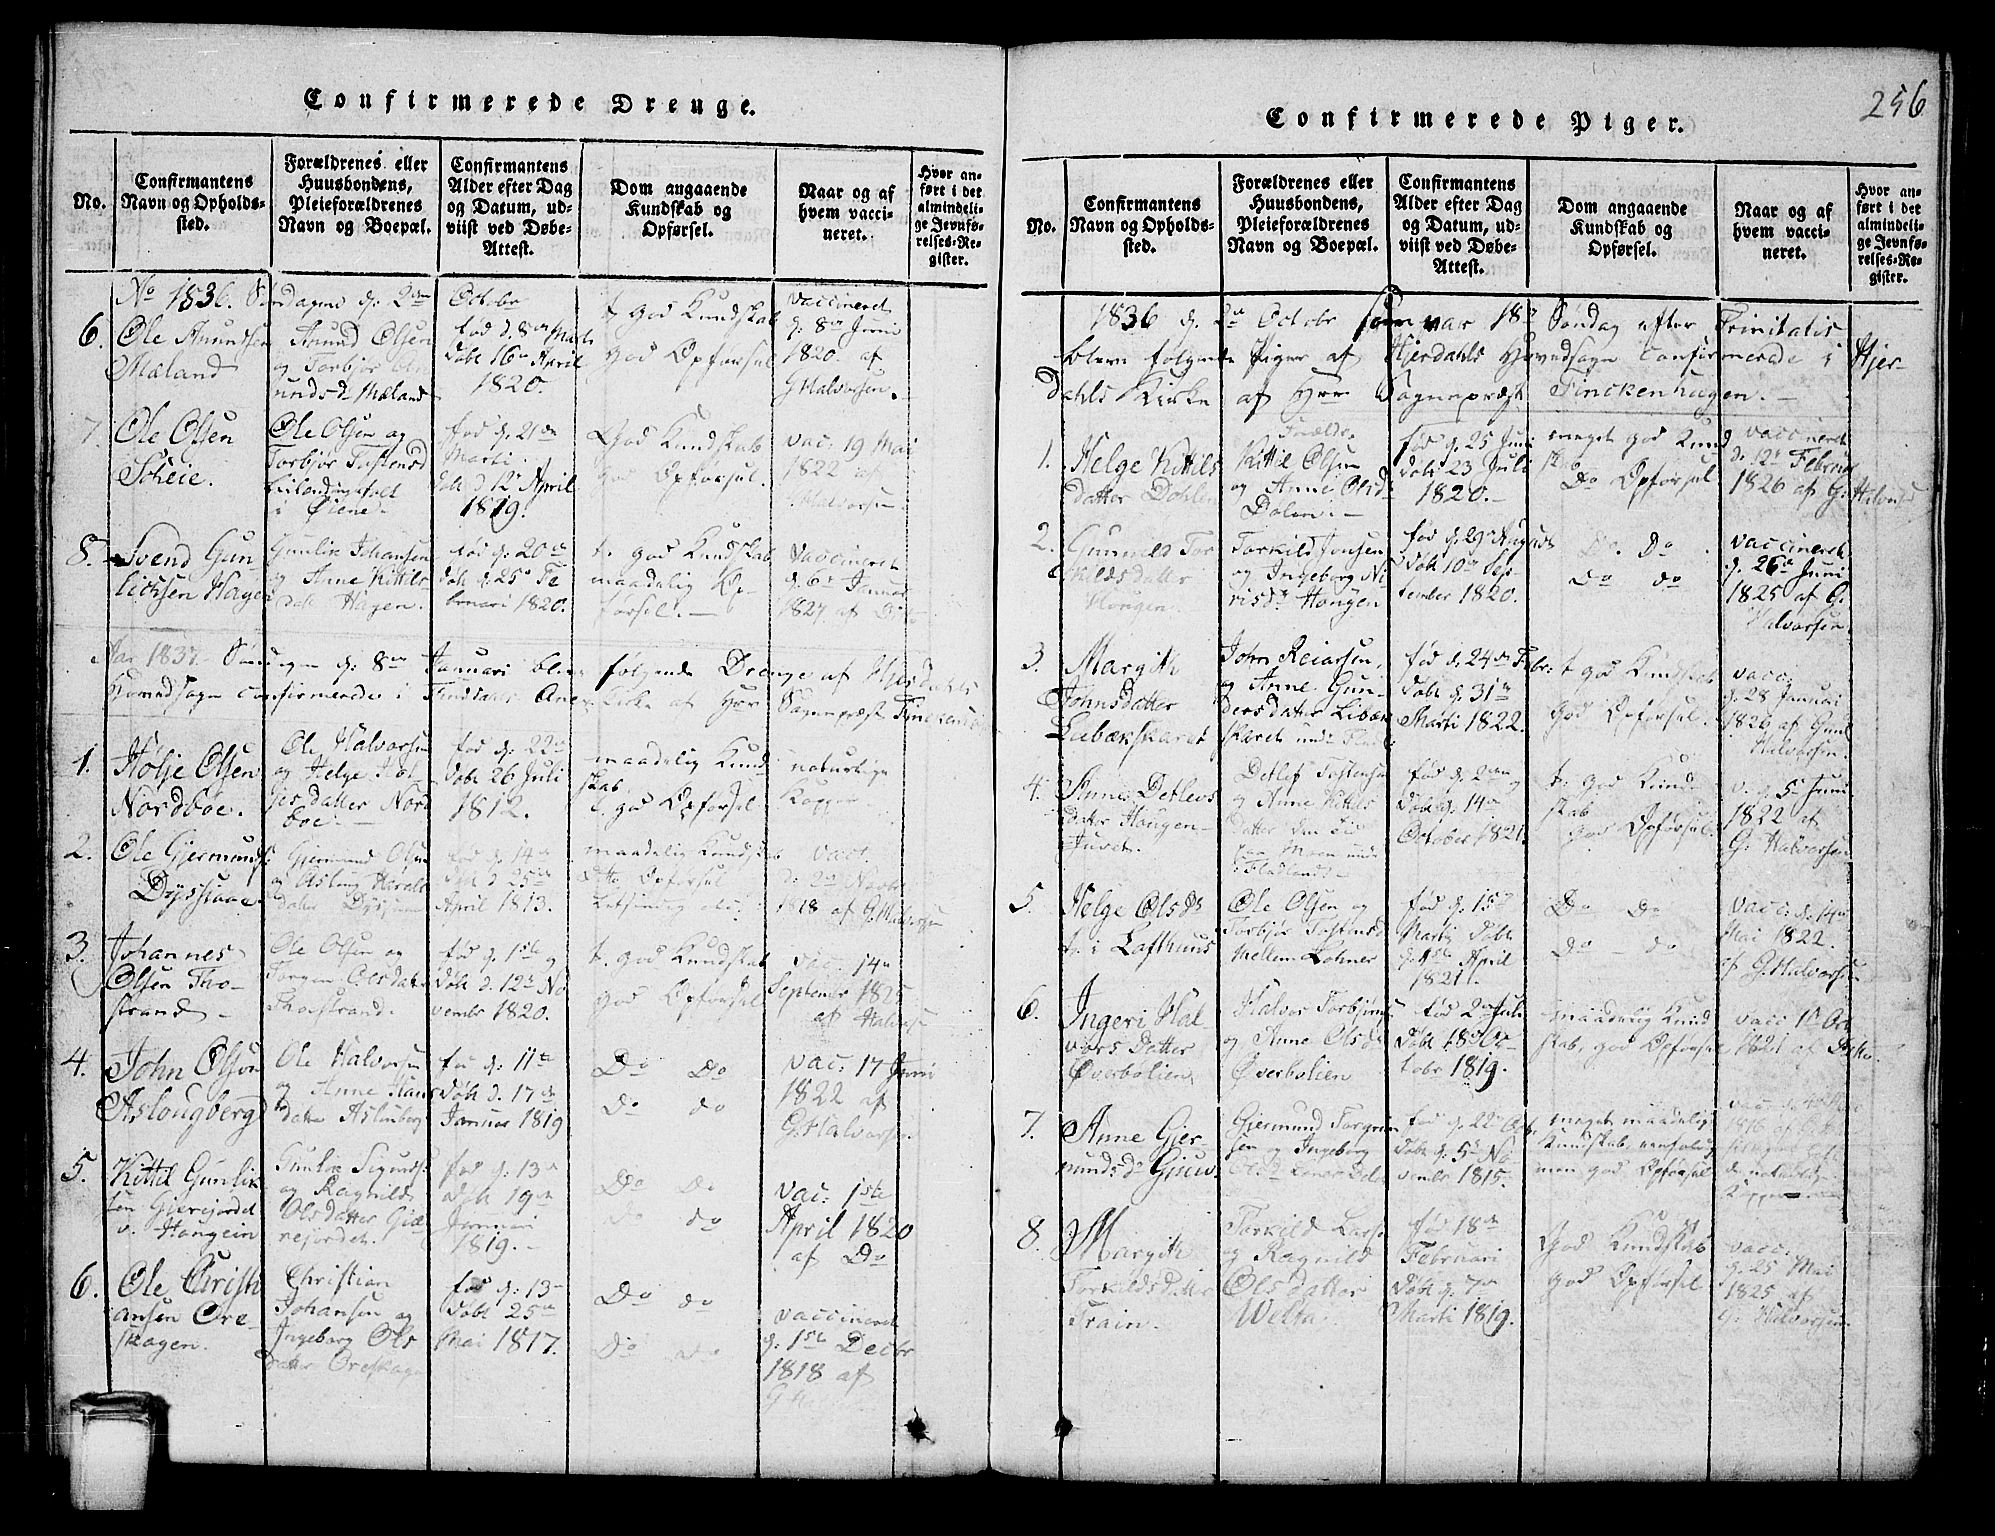 256
Confirmerede Drenge.
No.
Confirmantens
Navn og Opholds-
sted.
Forældrenes eller
Huusbondens,
Pleieforældrenes
Navn og Boepæl.
Confirmantens
Alder efter Dag
og Datum, ud-
viist ved Døbe-
Attest.
Dom angaaende
Kundskab og
Opførsel.
Naar og af
hvem vacci-
neret.
Hvor an-
ført i det
almindeli-
ge Jevnfø-
relses-Re-
gister.
No 1836. Søndagen d: 2den Octobr
6. Ole Amundsen
Mæland
Amund Olsen
og Torbjør
undsd. Mæland
fød d. 8de Marti
døbt 16de April
1820.
t. god Kundskab
god Opførsel
vaccineret
d: 8de Juni
1820. af
G Halvorsen.
7. Ole Olsen
Scheie.
Ole Olsen og
Torbjør Tostensd
i Øiene
fød d: 21de
Marti
døbt d. 12te April
1819.
God Kundskab
god Opførsel.
vac. 19 Mai
1822 af
G. Halvorsen
8. Svend Gun-
licksen Hagen
Gunlik Johansen
og Anne Kittils
datt Hagen.
fød d: 20de
døbt d: 25de Fe
bruari 1820.
t. god Kundskab
maadelig Op-
førsel.
vaccineret
d: 6te Januar
1827 af Ditto
Aar 1837. Søndagen d: 8de Januari blev følgende Drenge af Hjerdahls
Hovedsogn confirmerede i Kirke af Hrr Sognepræst Finckenhagen
1. Hølje Olsen
Nordbøe.
Ole Halvorsen
og Helge Høl
jesdatter Nord
bøe.
fød d: 22de
døbt 26 Juli
1812.
maadelig Kund
skab
t. god Opførsel
naturlige
Kopper
2. Ole Gjermunds:
Gjermund Olsen
og Asloug Harald
datter
fød d: 14de
døbt d 25de
April 1813.
maadelig Kundskab
Opførsel
vacc.
d: 2de Novbr
1818 af G. Halvorsen
3. Johannes
Olsen Tho-
strand
Ole Olsen og
Torgon Olsdatter
Thostrand.
fød d: 1ste og
døbt d. 12te No
vembr 1820.
t. god Kundskab
god Opførsel
vac. 14de
September 1825
af Halvorsen
4. John Olsen
Aslougberg
Ole Halvorsen
og Anne Hans
datter Aslouberg
fød d: 11te
døbt d. 17de
Januar 1819
Do Do
Do do
vac: 17 Juni
1822 af
G. Halvorsen.
5. Kittil Gunlik
sen Gjerejordet
v. Hougein
Gunlik Sigurds:
og Ragnild
Olsdatter Giæ
rejordet.
fød d: 13de
døbt 19de
Januari
1819.
Do Do
Do do
vac: 1ste
April 1820
af Do
6. Ole Christi
ansen Ore-
skagen.
Christian
Johansen og
Ingeborg Ols
datter Oreskage
fød d: 13de
døbt 25de
Mai 1817.
Do do
Do do
vaccineret
d: 1ste Decbr
1818 af
G H
Confirmerede Piger.
No.
Confirmantens
Navn og Opholds-
sted.
Forældrenes eller
Huusbondens,
Pleieforældrenes
Navn og Boepæl.
Confirmantens
Alder efter Dag
og Datum, ud-
viist ved Døbe-
Attest.
Dom angaaende
Kundskab og
Opførsel.
Naar og af
hvem vacci-
neret.
Hvor an-
ført i det
almindeli-
ge Jevnfø-
relses-Re-
gister.
1836 d. 2de Octobr som var 18de Søndag efter Trinitatis
bleve følgende Piger af Hjerdahls Hovedsogn confirmerede i Hjer-
dahls Kirke af Hrr Sognepræst Finckenhagen.
1. Helge Kittils
datter Dohlen
Foræld:
Kittil Olsen
og Anne Olsd
Dolen.
fød d: 25 Juni
døbt 23 Juli
1820.
meget god Kund
skab
Do Opførsel
vaccineret
d: 12te Februar
1826 af G. Halvorsen
2. Gunnild Tor
kildsdatter
Hougen
Torkild Jonsen
og Ingeborg Ni
risd: Hougen
fød d: 29de August
døbt 10de Sep-
tember 1820.
Do Do
Do do
vaccineret
d. 26de Juni
1825 af G.
Halvorsen.
3. Margith
Johnsdatter
Libækskaret
John Reiarsen,
og Anne Gun-
dersdatter Libæk
skaret
fød d: 24de Febr:
døbt d: 31te
Marti 1822.
t. god Kundskab
god Opførsel.
vacc.
d: 28 Januari
1826 af Gunl
Halvorsen.
4. Anne Detlevs
datter Hougen
Juvet.
Detlef Tostensen
og Anne Kittils
datter
paa Moen under
Fladland
fød d: 2den og
døbt d: 14de
October 1821.
t. god Kund
skab
god Opførsel.
v. d. 5 Juni
1822 af
G. Halvorsen
5. Helge Olsdr
t. i Lofthuus
Ole Olsen og
Torbjør Tostensd
Mellem Lohner
fød d: 15de
Martij døbt
d. 1ste April
1821.
Do Do
Do do
vacc: d: 14de
Mai 1822.
af G. Halvorsen
6. Ingeri Hal-
vorsdatter
Øverbølien
Halvor Torbjørns
og Anne Olsd
Øverbølien
fød 2de Juli
døbt 18de Oc
tobr 1819.
maadelig Kund
skab, god Opførsel
vacc 1ste Oct
1821 af Ditto
7. Anne Gjer-
mundsdr Gjuv.
Gjermund Torgrim
sen og Ingeborg
fød d: 22de Oct.
døbt d: 5te No
vembr 1815.
meget maadelig
Kundskab,
men god Opførsel
de naturlige
Kopper
8. Margith
Torkildsdatter
Train.
Torkild Larss:
og Ragnild
Olsdatter
Welta.
fød 18de
Februari
døbt d: 7de
Marti 1819.
God Kundskab
god Opførsel
vacc.
d: 25 Mai
1825 af
G. Halvorsen.